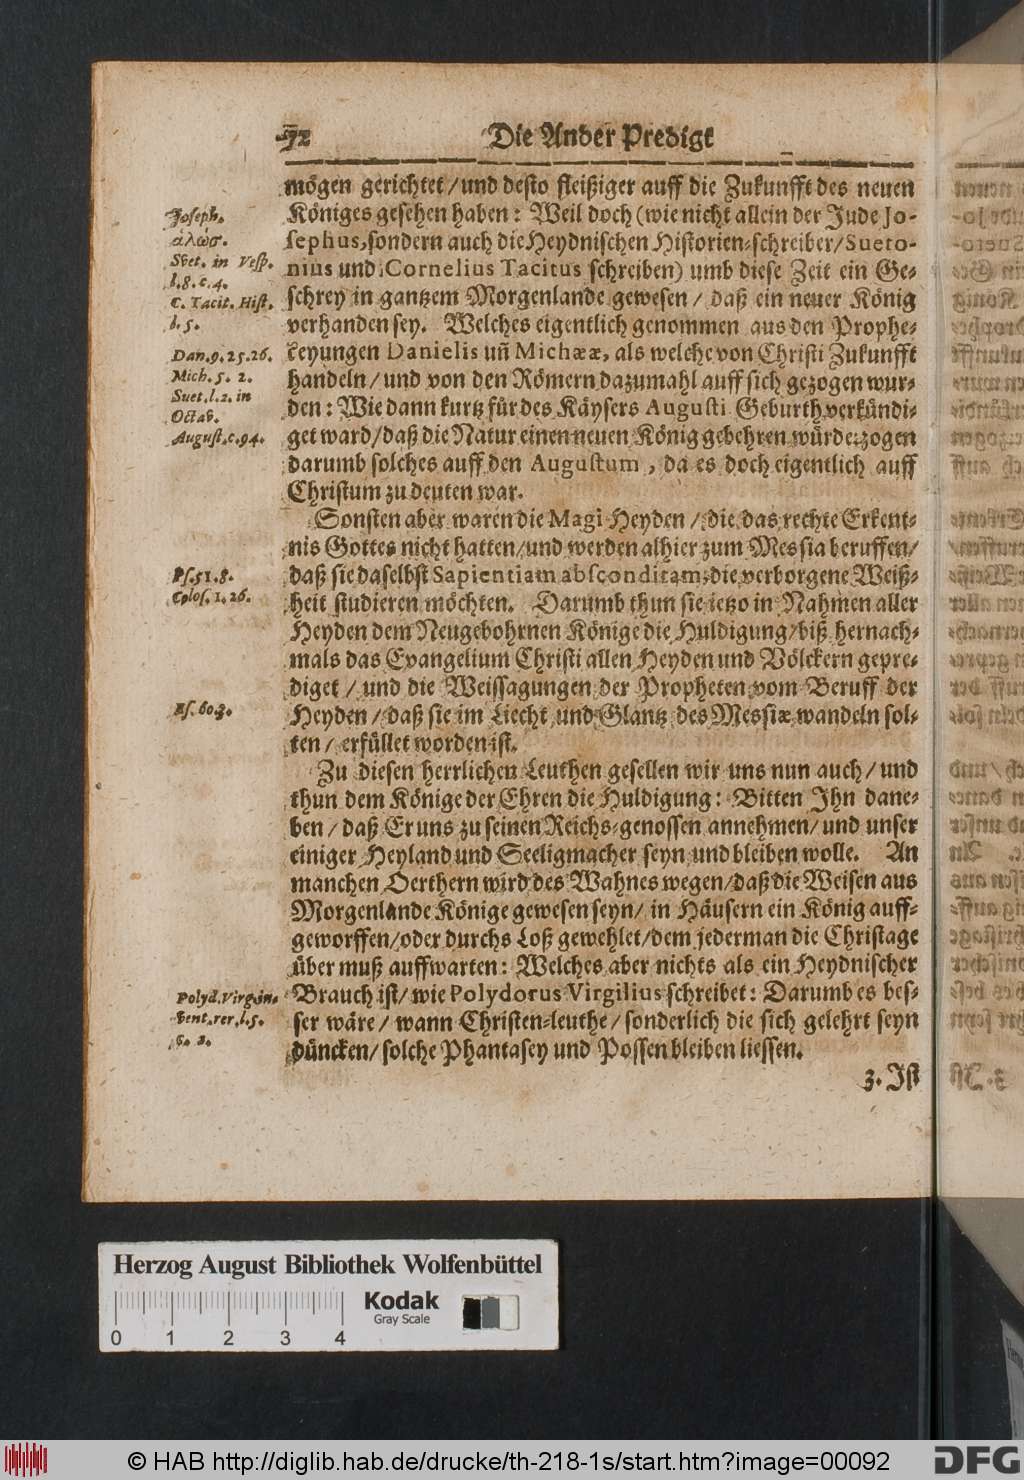 72 Die Ander Predigt
mögen gerichtet/und desto fleißiger auff die Zukunfft des neuen
Königes gesehen haben: Weil doch (wie nicht allein der Jude Jo-
sephus, sondern auch die Heydnischen Historien-schreiber/Sueto-
nius und Cornelius Tacitus schreiben) umb diese Zeit ein Ge-
schrey in gantzem Morgenlande gewesen/ daß ein neuer König
verhanden sey. Welches eigentlich genommen aus den Prophe-
ceyungen Danielis uñ Michææ, als welche von Christi Zukunfft
handeln/und von den Römern dazumahl auff sich gezogen wur-
den: Wie dann kurtz für des Käysers Augusti Geburth verkündi-
get ward/daß die Natur einen neuen König gebehren würde: zogen
darumb solches auff den Augustum, da es doch eigentlich auff
Christum zu deuten war.
Sonsten aber waren die Magi Heyden/die das rechte Erkent-
nis Gottes nicht hatten/und werden alhier zum Messia beruffen/
daß sie daselbst Sapientiam absconditam, die verborgene Weiß-
heit studieren möchten. Darumb thun sie ietzo in Nahmen aller
Heyden dem Neugebohrnen Könige die Huldigung/biß hernach-
mals das Evangelium Christi allen Heyden und Völckern gepre-
diget/und die Weissagungen der Propheten vom Beruff der
Heyden/daß sie im Liecht und Glantz des Messiæ wandeln sol-
ten/erfüllet worden ist.
Zu diesen herrlichen Leuthen gesellen wir uns nun auch/und
thun dem Könige der Ehren die Huldigung: Bitten Ihn dane-
ben/daß Er uns zu seinen Reichs-genossen annehmen/und unser
einiger Heyland und Seeligmacher seyn und bleiben wolle. An
manchen Oerthern wird des Wahnes wegen/daß die Weisen aus
Morgenlande Könige gewesen seyn/ in Häusern ein König auff-
geworffen/oder durchs Loß gewehlet/dem jederman die Christage
über muß auffwarten: Welches aber nichts als ein Heydnischer
Brauch ist/wie Polydorus Virgilius schreibet: Darumb es bes-
ser wäre/wann Christen-leuthe/sonderlich die sich gelehrt seyn
düncken/solche Phantasey und Possen bleiben liessen.
3. Ist
Joseph.
ἁλωσ.
Svet. in Vesp.
l. 8. c. 4.
C. Tacit. Hist.
l. 5.
Dan. 9. 25. 26.
Mich. 5. 2.
Suet. l. 2. in
Octav.
August. c. 94.
Ps. 51. 8.
Colos. 1. 26.
Es. 60. 3.
Polyd. Virg. in
vent. rer. l. 5.
Herzog August Bibliothek Wolfenbüttel
0 1 2 3 4
Kodak
Gray Scale
© HAB http://diglib.hab.de/drucke/th-218-1s/start.htm?image=00092
DFG